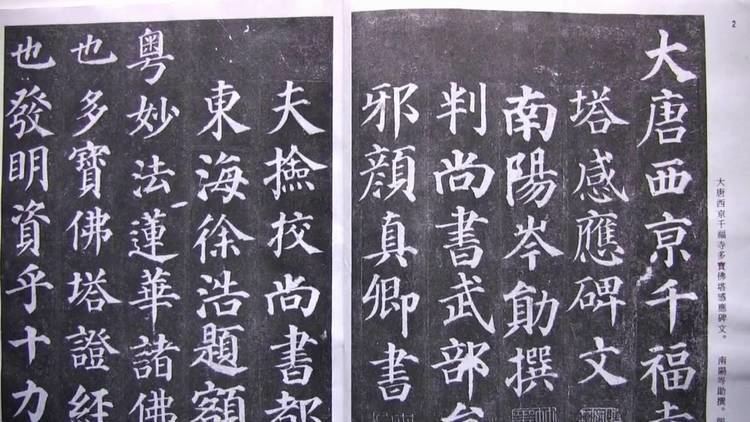 2
大唐西京千福寺多寶佛塔感應碑文。 南陽岑勛撰。
大唐西京千福
塔感應碑文
南陽岑勛撰
判尚書武部
邪顏真卿書
夫撿校尚書都
東海徐浩題額
粵妙法蓮華諸佛
也多寶佛塔證經
也發明資乎十力